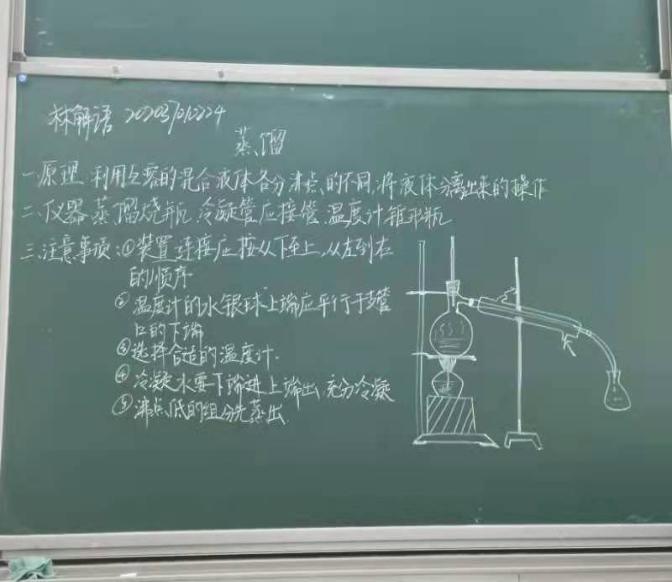 林解语 202037010224
蒸馏
一原理 利用互溶的混合液体各分沸点的不同,将液体分离出来的操作
二、仪器 蒸馏烧瓶 冷凝管应接管 温度计锥形瓶
三、注意事项:①装置连接应按从下至上,从左到右
的顺序
②温度计的水银球上端应平行于支管
口的下端
③选择合适的温度计.
④冷凝水要下端进上端出 充分冷凝
⑤沸点低的组分先蒸出